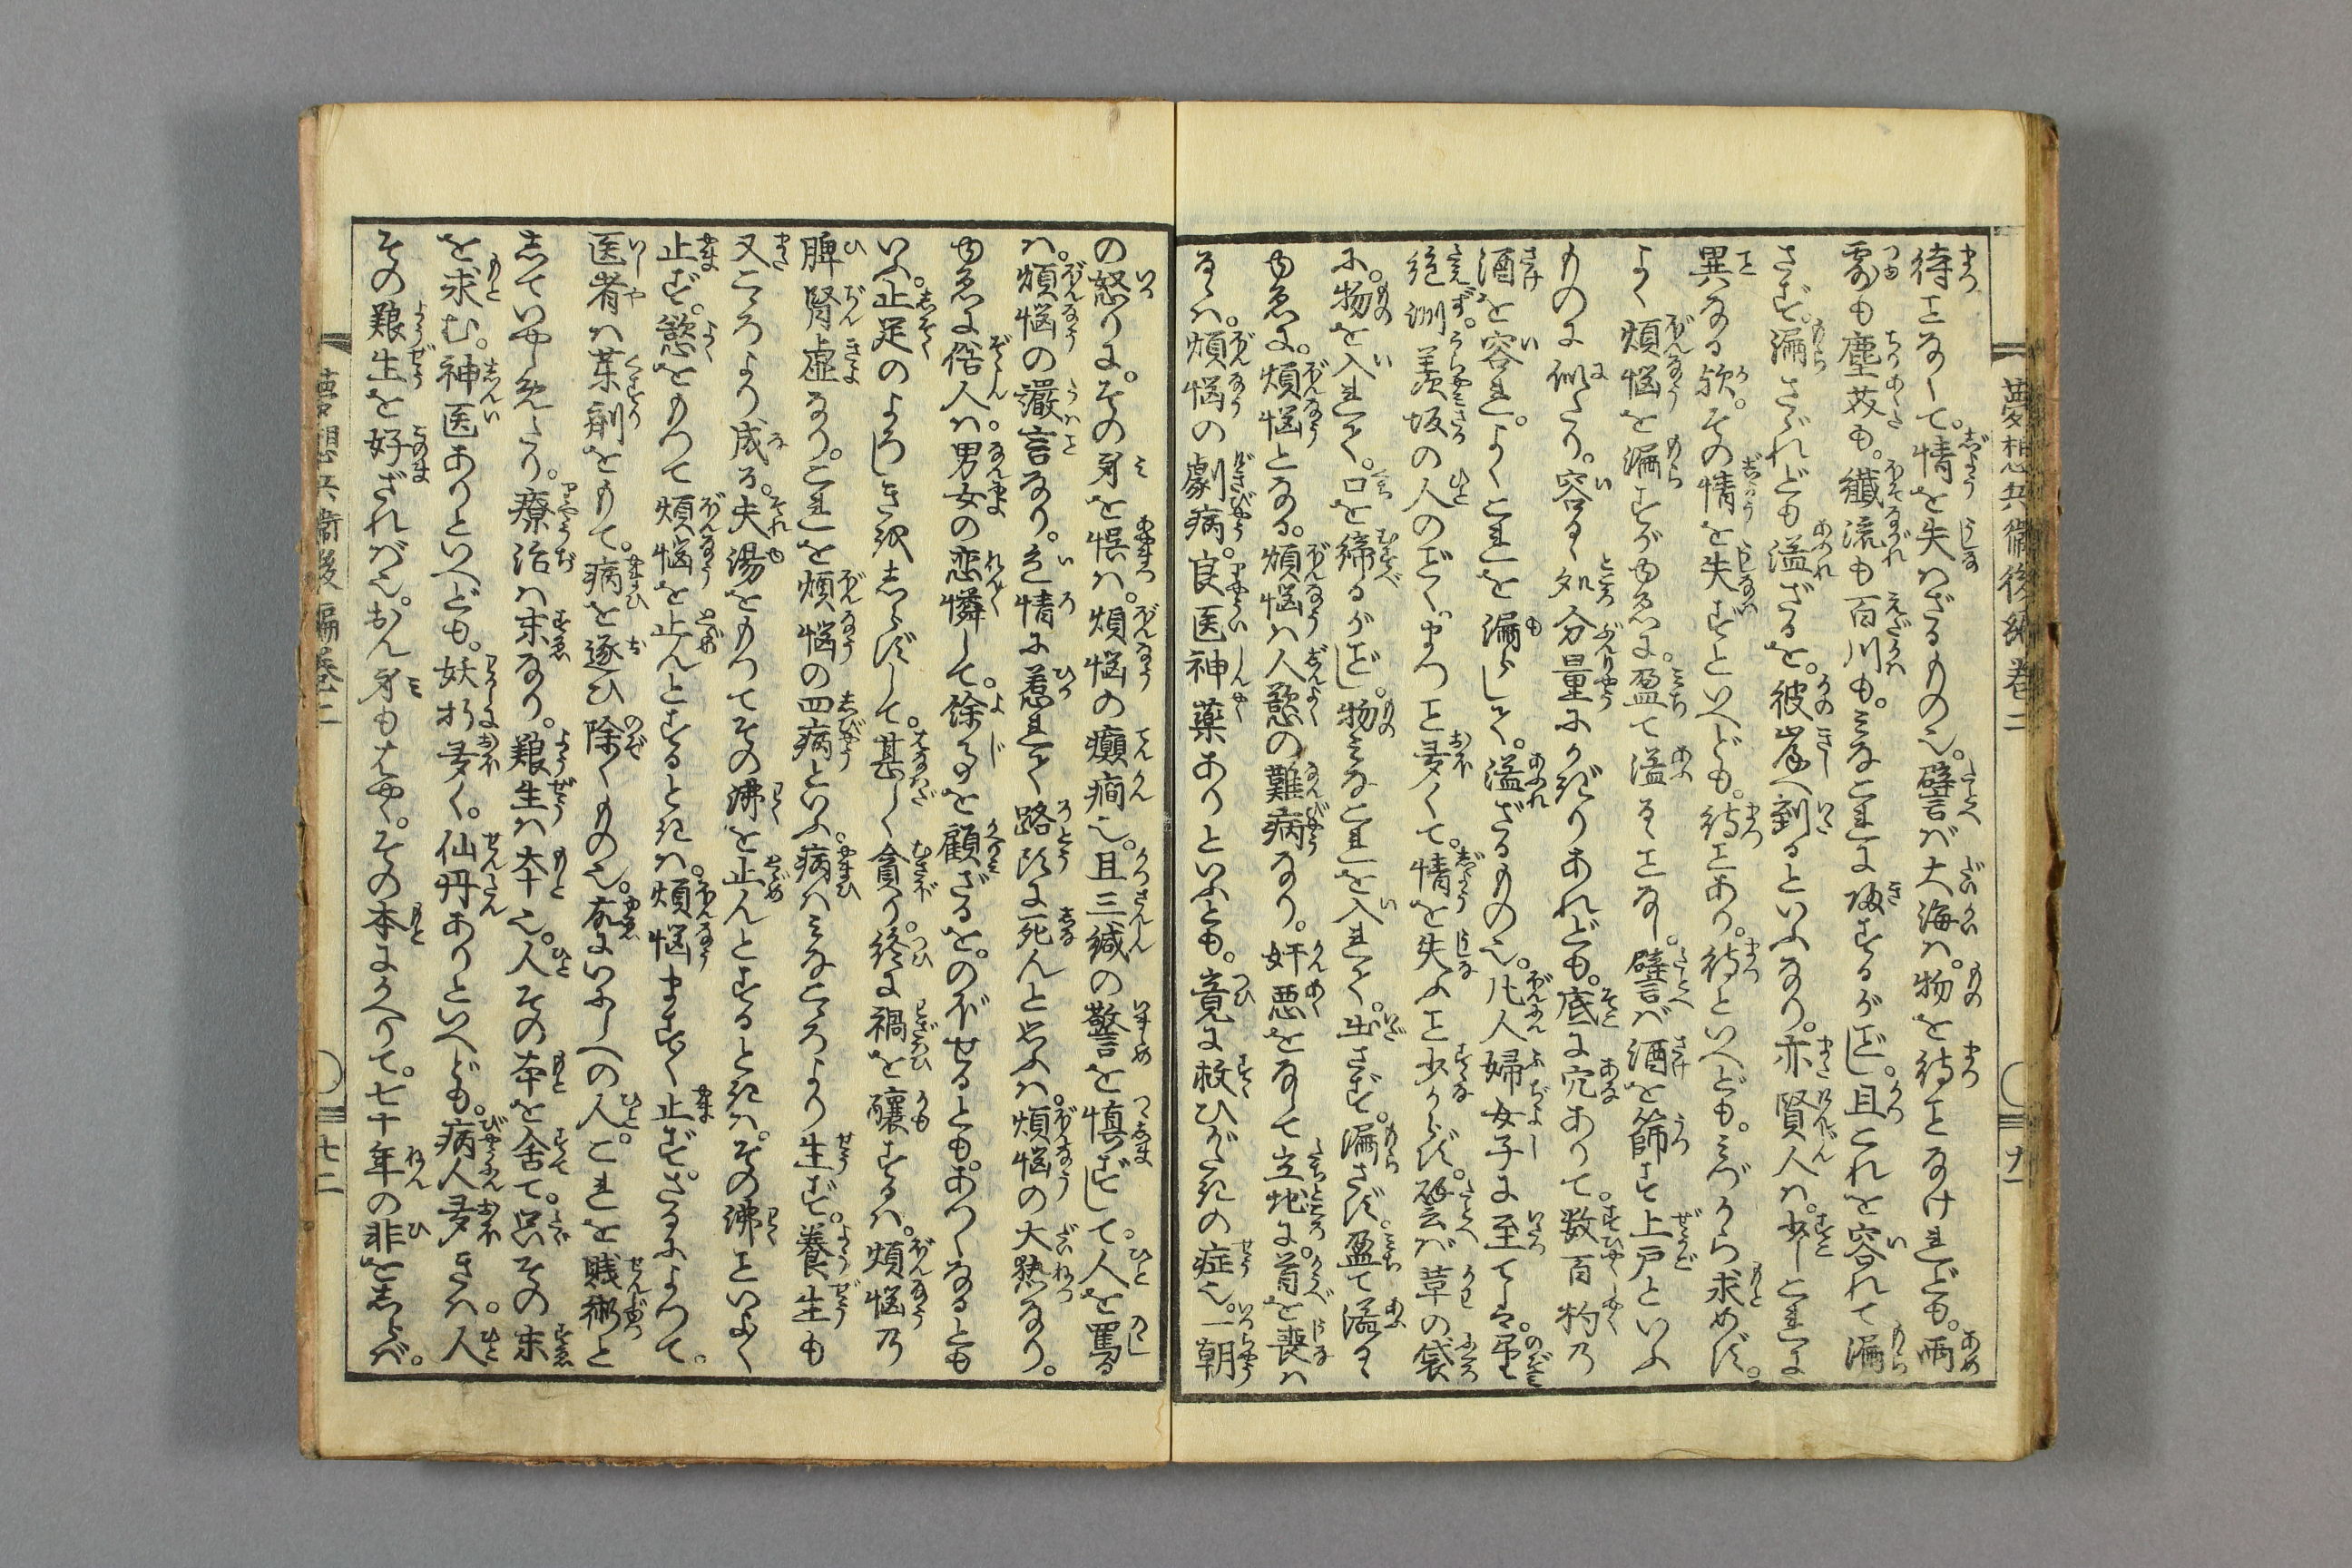 夢想兵衛後編巻二
待ことなくて。情を失はざるもの也。譬ば大海は。物を待ことなけれども。雨
露も塵芥も。纎流も百川も。みなこれに帰するが如し。且これを容れて漏
さず。漏さゞれども溢ざるを。彼岸へ到るといふなり。亦賢人は。少しこれに
異なる歟。その情を失ずといへども。待ことあり。待といへども。みづから求めず。
よく煩悩を漏すがゆゑに。盈て溢るゝことなし。譬ば酒を篩す上戸といふ
ものに似たり。容るゝ処分量にかぎりあれども。底に穴ありて。数百杓の
酒を容れ。よくこれを漏らして。溢ざるもの也。凡人婦女子に至ては。望
絶ず。羨坂の人のごとく。まつこと多くて。情を失ふこと少からず。譬ば草の袋
に。物を入れて。口を締るが如し。物みなこれを入れて。出さず。漏さず。盈て溢るゝ
ゆゑに。煩悩となる。煩悩は人慾の難病なり。奸悪をなして立地に。首を喪は
るゝは。煩悩の劇病。良医神薬ありといふとも。竟に救ひがたきの症也。一朝
の怒りに。その身を悞は。煩悩の癲癇也。且三緘の警を慎ずして。人を罵る
は。煩悩の譫言なり。色情に惹れて路頭に死んと思ふは。煩悩の大熱なり。
ゆゑに俗人は。男女の恋憐して。余事を顧ざるを。のぼせるとも。あつくなるとも
いふ。止足のよろしきをしらずして。甚しく貪り。終に禍を醸するは。煩悩の
脾腎虚なり。これを煩悩の四病といふ。病はみなこゝろより生ず。養生も
又こゝろより成る。夫湯をもつてその沸を止んとするときは。その沸こといよゝ
止ず。慾をもつて煩悩を止んとするときは。煩悩ますゝ止ず。さるによつて。
医者は薬剤をもて。病を逐ひ除くもの也。故にいにしへの人。これを賤術と
していやしめたり。療治は末なり。養生は本也。人その本を舎て。只その末
を求む。神医ありといへども。妖孽多く。仙丹ありといへども。病人多きは。人
その養生を好ざれば也。おん身もはやく。その本にかへりて。七十年の非をしらば。
夢想兵衛後編巻二